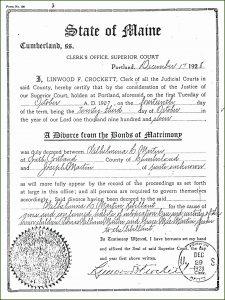 Form No. 106
State of Maine
Cumberland, ss.
CLERK'S OFFICE, SUPERIOR COURT
Portland, December 1st 1928
I, LINWOOD F. CROCKETT, Clerk of all the Judicial Courts in
said County, hereby certify that by the consideration of the Justice of
our Superior Court, holden at Portland, aforesaid, on the first Tuesday of
October A. D. 1907 the fourteenth day
of the term, being the twenty third day of October in
the year of our Lord one thousand nine hundred and seven
A Divorce from the Bonds of Matrimony
was duly decreed between Wilhelmina B. Martin
of South Portland County of Cumberland and
Joseph Martin of parts unknown
as will more fully appear by the record of the proceedings as set forth
at large in this office; and all persons are required to govern themselves
accordingly. Said divorce having been decreed to the said
Wilhelmina B. Martin, libellant for the cause of
gross and confirmed habits of intoxication and custody of the
Martin
to the libellant.
In Testimony Whereof, I have hereunto set my hand
and affixed the Seal of said Superior Court, the day
DEC
29
1928